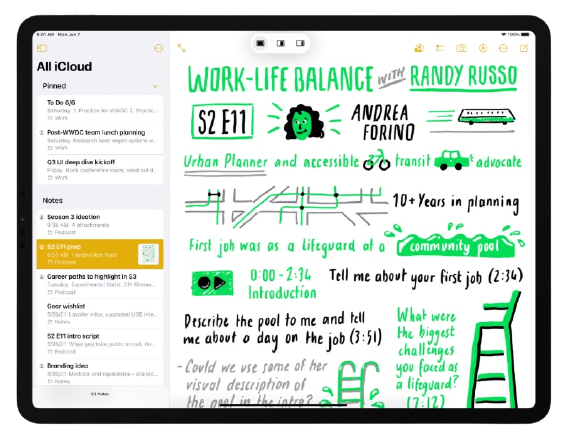 9:41 AM Mon Jun 7
100%
All iCloud
Pinned
To Do 6/6
Saturday 1. Practice for WWDC 2. Practic...
Work
Post-WWDC team lunch planning
Saturday
Work
Q3 UI deep dive kickoff
Friday Book conference room, send out d...
Work
Notes
Season 3 ideation
9:32 AM 4 attachments
Podcast
S2 E11 prep
8:53 AM Handwritten Note
Podcast
Career paths to highlight in S3
Tuesday
Podcast
Gear wishlist
5/28/21
Notes
S2 E11 intro script
5/26/21 When you take public transit, do...
Podcast
Branding idea
Notes
63 Notes
WORK-LIFE BALANCE WITH RANDY RUSSO
S2 E11
ANDREA
FORINO
Urban Planner and accessible transit & advocate
10+ Years in planning
First job was as a lifeguard at a community pool
0:00 - 2:34
Introduction
Tell me about your first job (2:34)
Describe the pool to me and tell
me about a day on the job (3:51)
- Could we use some of her
visual description of
the pool in the intro?
What were
the biggest
challenges
you faced as
a lifeguard?
(7:12)